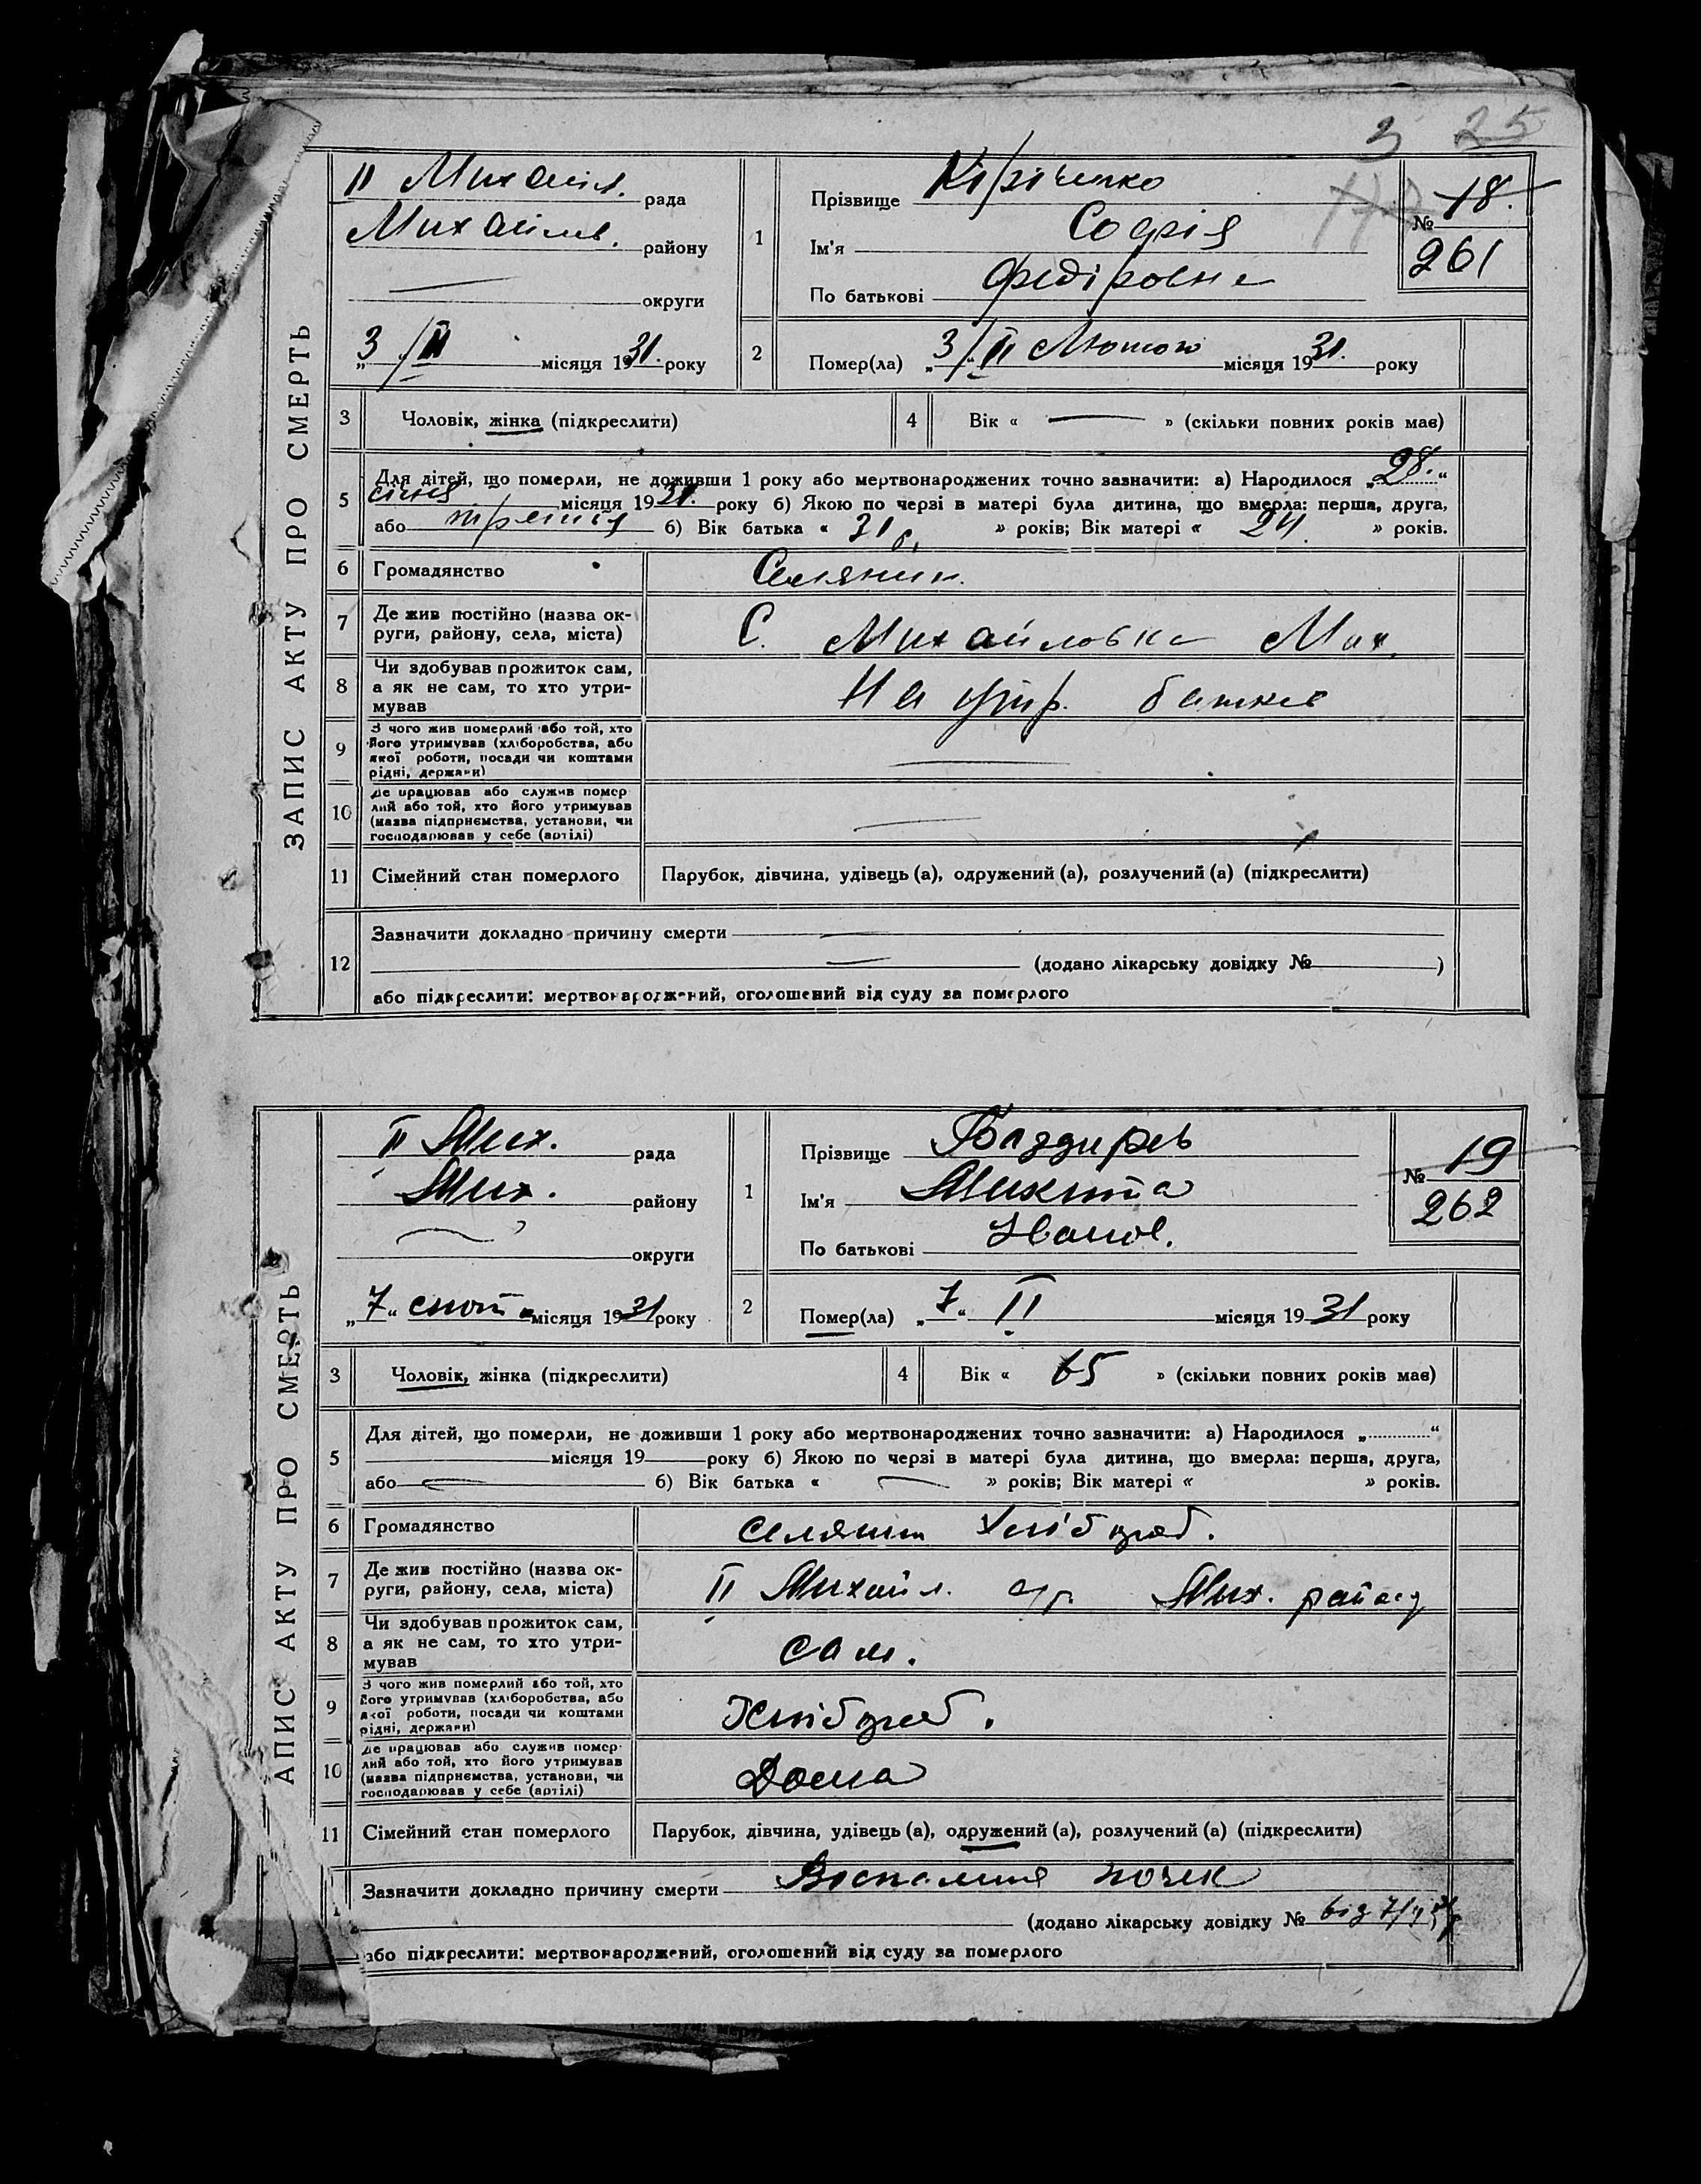 3 25
ЗАПИС АКТУ ПРО СМЕРТЬ
II Михайл. рада
Михайлів. району
округи
3/II місяця 1931. року
1
Прізвище Кіріченко
Ім'я Софія
По батькові Федіровна
№ 18.
261
2
Помер(ла) „3/" II Лютого місяця 1931. року
3 Чоловік, жінка (підкреслити)
4 Вік « — » (скільки повних років має)
5 Для дітей, що померли, не доживши 1 року або мертвонароджених точно зазначити: а) Народилося „28."
січня місяця 1931. року б) Якою по черзі в матері була дитина, що вмерла: перша, друга,
або третья б) Вік батька « 31 р. » років; Вік матері « 24. » років.
6 Громадянство Селянин.
7 Де жив постійно (назва ок-
руги, району, села, міста) С. Михайловка Мих.
8 Чи здобував прожиток сам,
а як не сам, то хто утри-
мував На утр. батька
9 З чого жив померлий або той, хто
його утримував (хліборобства, або
якої роботи, посади чи коштами
рідні, держави) —
10 Де працював або служив помер
лий або той, хто його утримував
(назва підприємства, установи, чи
господарював у себе (артілі) —
11 Сімейний стан померлого Парубок, дівчина, удівець (а), одружений (а), розлучений (а) (підкреслити)
12 Зазначити докладно причину смерти —
— (додано лікарську довідку № )
або підкреслити: мертвонароджений, оголошений від суду за померлого
АПИС АКТУ ПРО СМЕРТЬ
II Мих. рада
Мих. району
округи
„7" місяця 1931 року
1
Прізвище Баздирев
Ім'я Микита
По батькові Іванов.
№ 19
262
2
Помер(ла) „7" II місяця 1931 року
3 Чоловік, жінка (підкреслити)
4 Вік « 65 » (скільки повних років має)
5 Для дітей, що померли, не доживши 1 року або мертвонароджених точно зазначити: а) Народилося „ "
місяця 19 року б) Якою по черзі в матері була дитина, що вмерла: перша, друга,
або — б) Вік батька « — » років; Вік матері « » років.
6 Громадянство селянин Хлібороб.
7 Де жив постійно (назва ок-
руги, району, села, міста) II Михайл. с/р. Мих. району
8 Чи здобував прожиток сам,
а як не сам, то хто утри-
мував сам.
9 З чого жив померлий або той, хто
його утримував (хліборобства, або
якої роботи, посади чи коштами
рідні, держави) Хлібороб.
10 Де працював або служив помер-
лий або той, хто його утримував
(назва підприємства, установи, чи
господарював у себе (артілі) Дома
11 Сімейний стан померлого Парубок, дівчина, удівець (а), одружений (а), розлучений (а) (підкреслити)
Зазначити докладно причину смерти Воспаления почек
(додано лікарську довідку № від 7/II 31р
або підкреслити: мертвонароджений, оголошений від суду за померлого